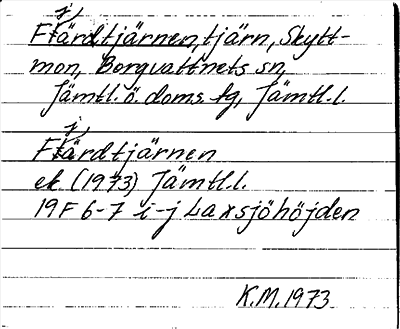 Fjärdtjärnen, tjärn, Skytt-
mon, Borgvattnets sn,
Jämtl. ö. doms. fg, Jämtl. l.
Fjärdtjärnen
ek (1973) Jämtl. l.
19 F 6-7 i-j Laxsjöhöjden
K.M. 1973